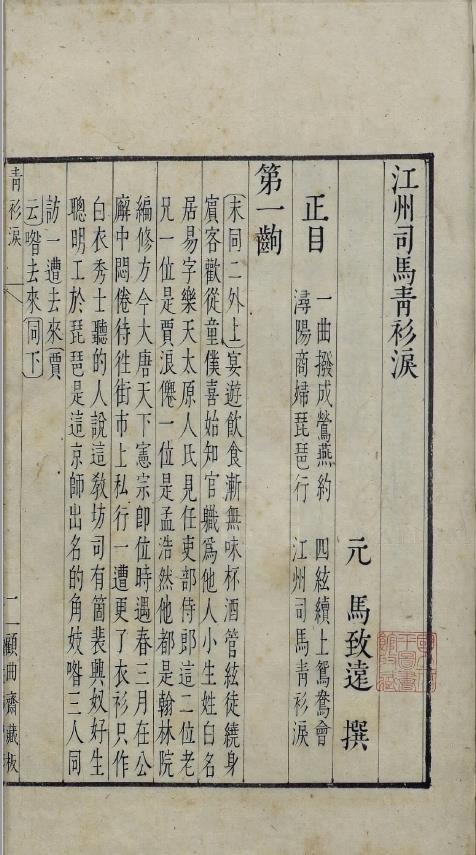 江州司馬青衫淚
元 馬致遠 撰
正目 一曲撥成鶯燕約 四絃續上鴛鴦會
潯陽商婦琵琶行 江州司馬青衫淚
第一齣
末同二外上宴遊飲食漸無味杯酒管絃徒繞身
賔客歡從童僕喜始知官職爲他人小生姓白名
居易字樂天太原人氏見任吏部侍郎這二位老
兄一位是賈浪僊一位是孟浩然他都是翰林院
編修方今大唐天下憲宗卽位時遇春三月在公
廨中悶倦待徃街市上私行一遭更了衣衫只作
白衣秀士聽的人說這敎坊司有箇裴興奴好生
聰明工於琵琶是這京師出名的角妓喒三人同
訪一遭去來賈
云喒去來同下
青衫淚
一 顧曲齋藏板